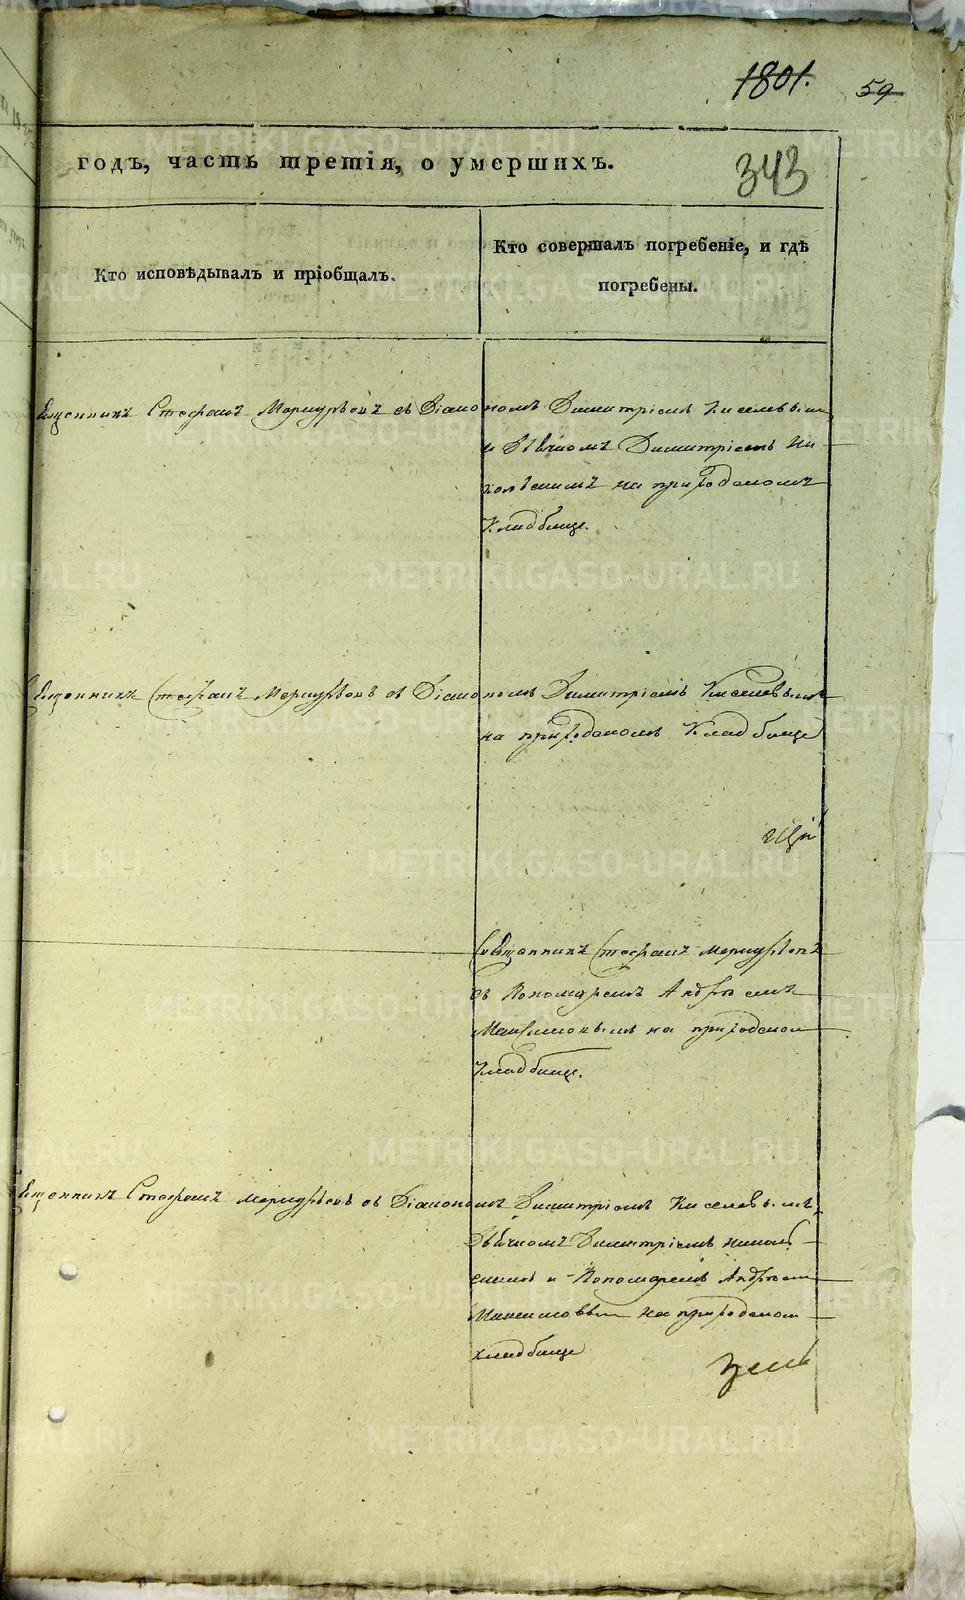 1801. 59
годъ, часть третія, о умершихъ.
343
Кто исповѣдывалъ и пріобщалъ.
Кто совершалъ погребеніе, и гдѣ
погребены.
Священникъ Стефанъ Меркурьевъ съ Діакономъ Димитріемъ Киселевым
и Дьячкомъ Димитріемъ Ни
кольскимъ на приходскомъ
Кладбище.
Священникъ Стефанъ Меркурьевъ съ Діакономъ Димитріемъ Киселевымъ
на приходскомъ Кладбище
Священникъ Стефанъ Меркурьевъ
съ Пономаремъ Андреемъ
Максимовымъ на приходском
Кладбище.
Священникъ Стефанъ Меркурьевъ съ Діакономъ Димитріемъ Киселевымъ,
Дьячкомъ Димитріемъ Николь
скимъ и Пономаремъ Андреем
Максимовым на приходском
кладбище
METRIKI.GASO-URAL.RU